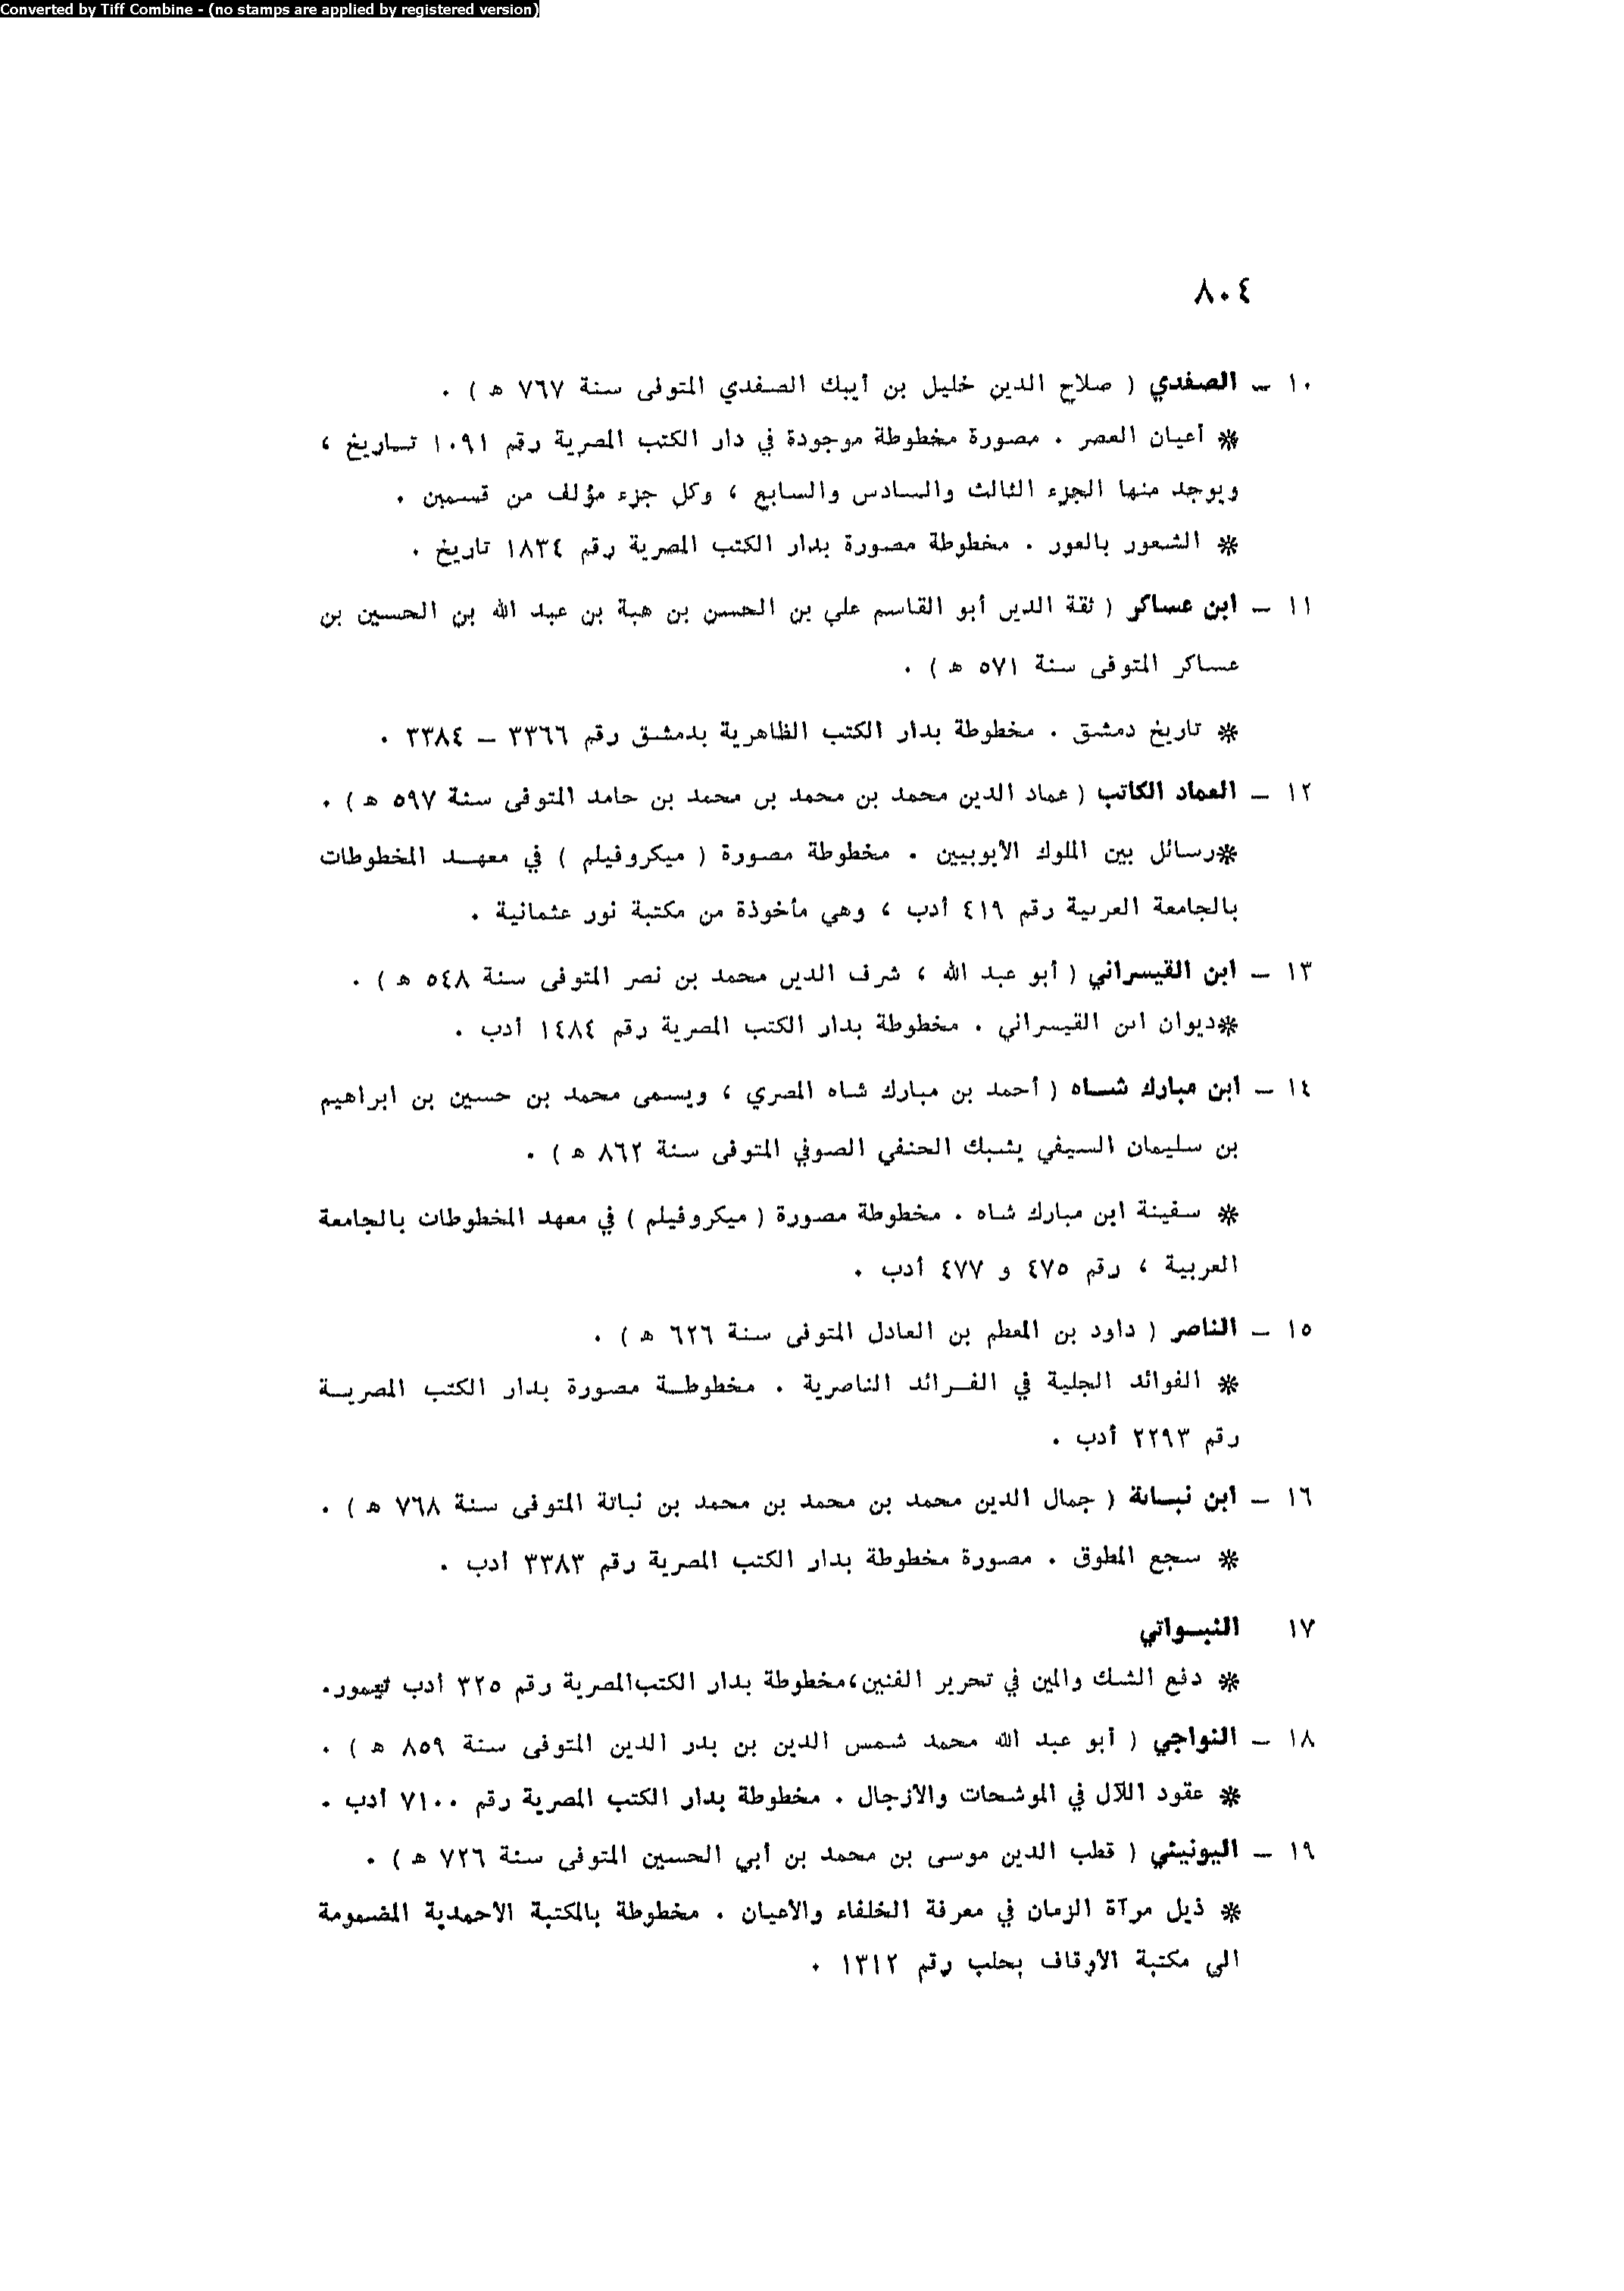 Converted by Tiff Combine - (no stamps are applied by registered version)
٨٠٤
١٠ ـ الصفدي ( صلاح الدين خليل بن أيبك الصفدي المتوفى سنة ٧٦٧ هـ ) .
* أعيان العصر . مصورة مخطوطة موجودة في دار الكتب المصرية رقم ١٠٩١ تاريخ ،
ويوجد منها الجزء الثالث والسادس والسابع ، وكل جزء مؤلف من قسمين .
* الشعور بالعور . مخطوطة مصورة بدار الكتب المصرية رقم ١٨٣٤ تاريخ .
١١ ـ ابن عساكر ( ثقة الدين أبو القاسم علي بن الحسن بن هبة بن عبد الله بن الحسين بن
عساكر المتوفى سنة ٥٧١ هـ ) .
* تاريخ دمشق . مخطوطة بدار الكتب الظاهرية بدمشق رقم ٣٣٦٦ ـ ٣٣٨٤ .
١٢ ـ العماد الكاتب ( عماد الدين محمد بن محمد بن محمد بن حامد المتوفى سنة ٥٩٧ هـ ) .
*رسائل بين الملوك الأيوبيين . مخطوطة مصورة ( ميكروفيلم ) في معهد المخطوطات
بالجامعة العربية رقم ٤١٩ أدب ، وهي مأخوذة من مكتبة نور عثمانية .
١٣ ـ ابن القيسراني ( أبو عبد الله ، شرف الدين محمد بن نصر المتوفى سنة ٥٤٨ هـ ) .
*ديوان ابن القيسراني . مخطوطة بدار الكتب المصرية رقم ١٤٨٤ أدب .
١٤ ـ ابن مبارك شاه ( أحمد بن مبارك شاه المصري ، ويسمى محمد بن حسين بن ابراهيم
بن سليمان السيفي يشبك الحنفي الصوفي المتوفى سنة ٨٦٢ هـ ) .
* سفينة ابن مبارك شاه . مخطوطة مصورة ( ميكروفيلم ) في معهد المخطوطات بالجامعة
العربية ، رقم ٤٧٥ و ٤٧٧ أدب .
١٥ ـ الناصر ( داود بن المعظم بن العادل المتوفى سنة ٦٢٦ هـ ) .
* الفوائد الجلية في الفرائد الناصرية . مخطوطة مصورة بدار الكتب المصرية
رقم ٢٢٩٣ أدب .
١٦ ـ ابن نباتة ( جمال الدين محمد بن محمد بن محمد بن نباتة المتوفى سنة ٧٦٨ هـ ) .
* سجع المطوق . مصورة مخطوطة بدار الكتب المصرية رقم ٣٣٨٣ أدب .
١٧ النبواتي
* دفع الشك والمين في تحرير الفنين، مخطوطة بدار الكتب المصرية رقم ٣٢٥ أدب تيمور.
١٨ ـ النواجي ( أبو عبد الله محمد شمس الدين بن بدر الدين المتوفى سنة ٨٥٩ هـ ) .
* عقود اللآل في الموشحات والأزجال . مخطوطة بدار الكتب المصرية رقم ٧١٠٠ أدب .
١٩ ـ اليونيني ( قطب الدين موسى بن محمد بن أبي الحسين المتوفى سنة ٧٢٦ هـ ) .
* ذيل مرآة الزمان في معرفة الخلفاء والأعيان . مخطوطة بالمكتبة الاحمدية المضمومة
الى مكتبة الأوقاف بحلب رقم ١٣١٢ .